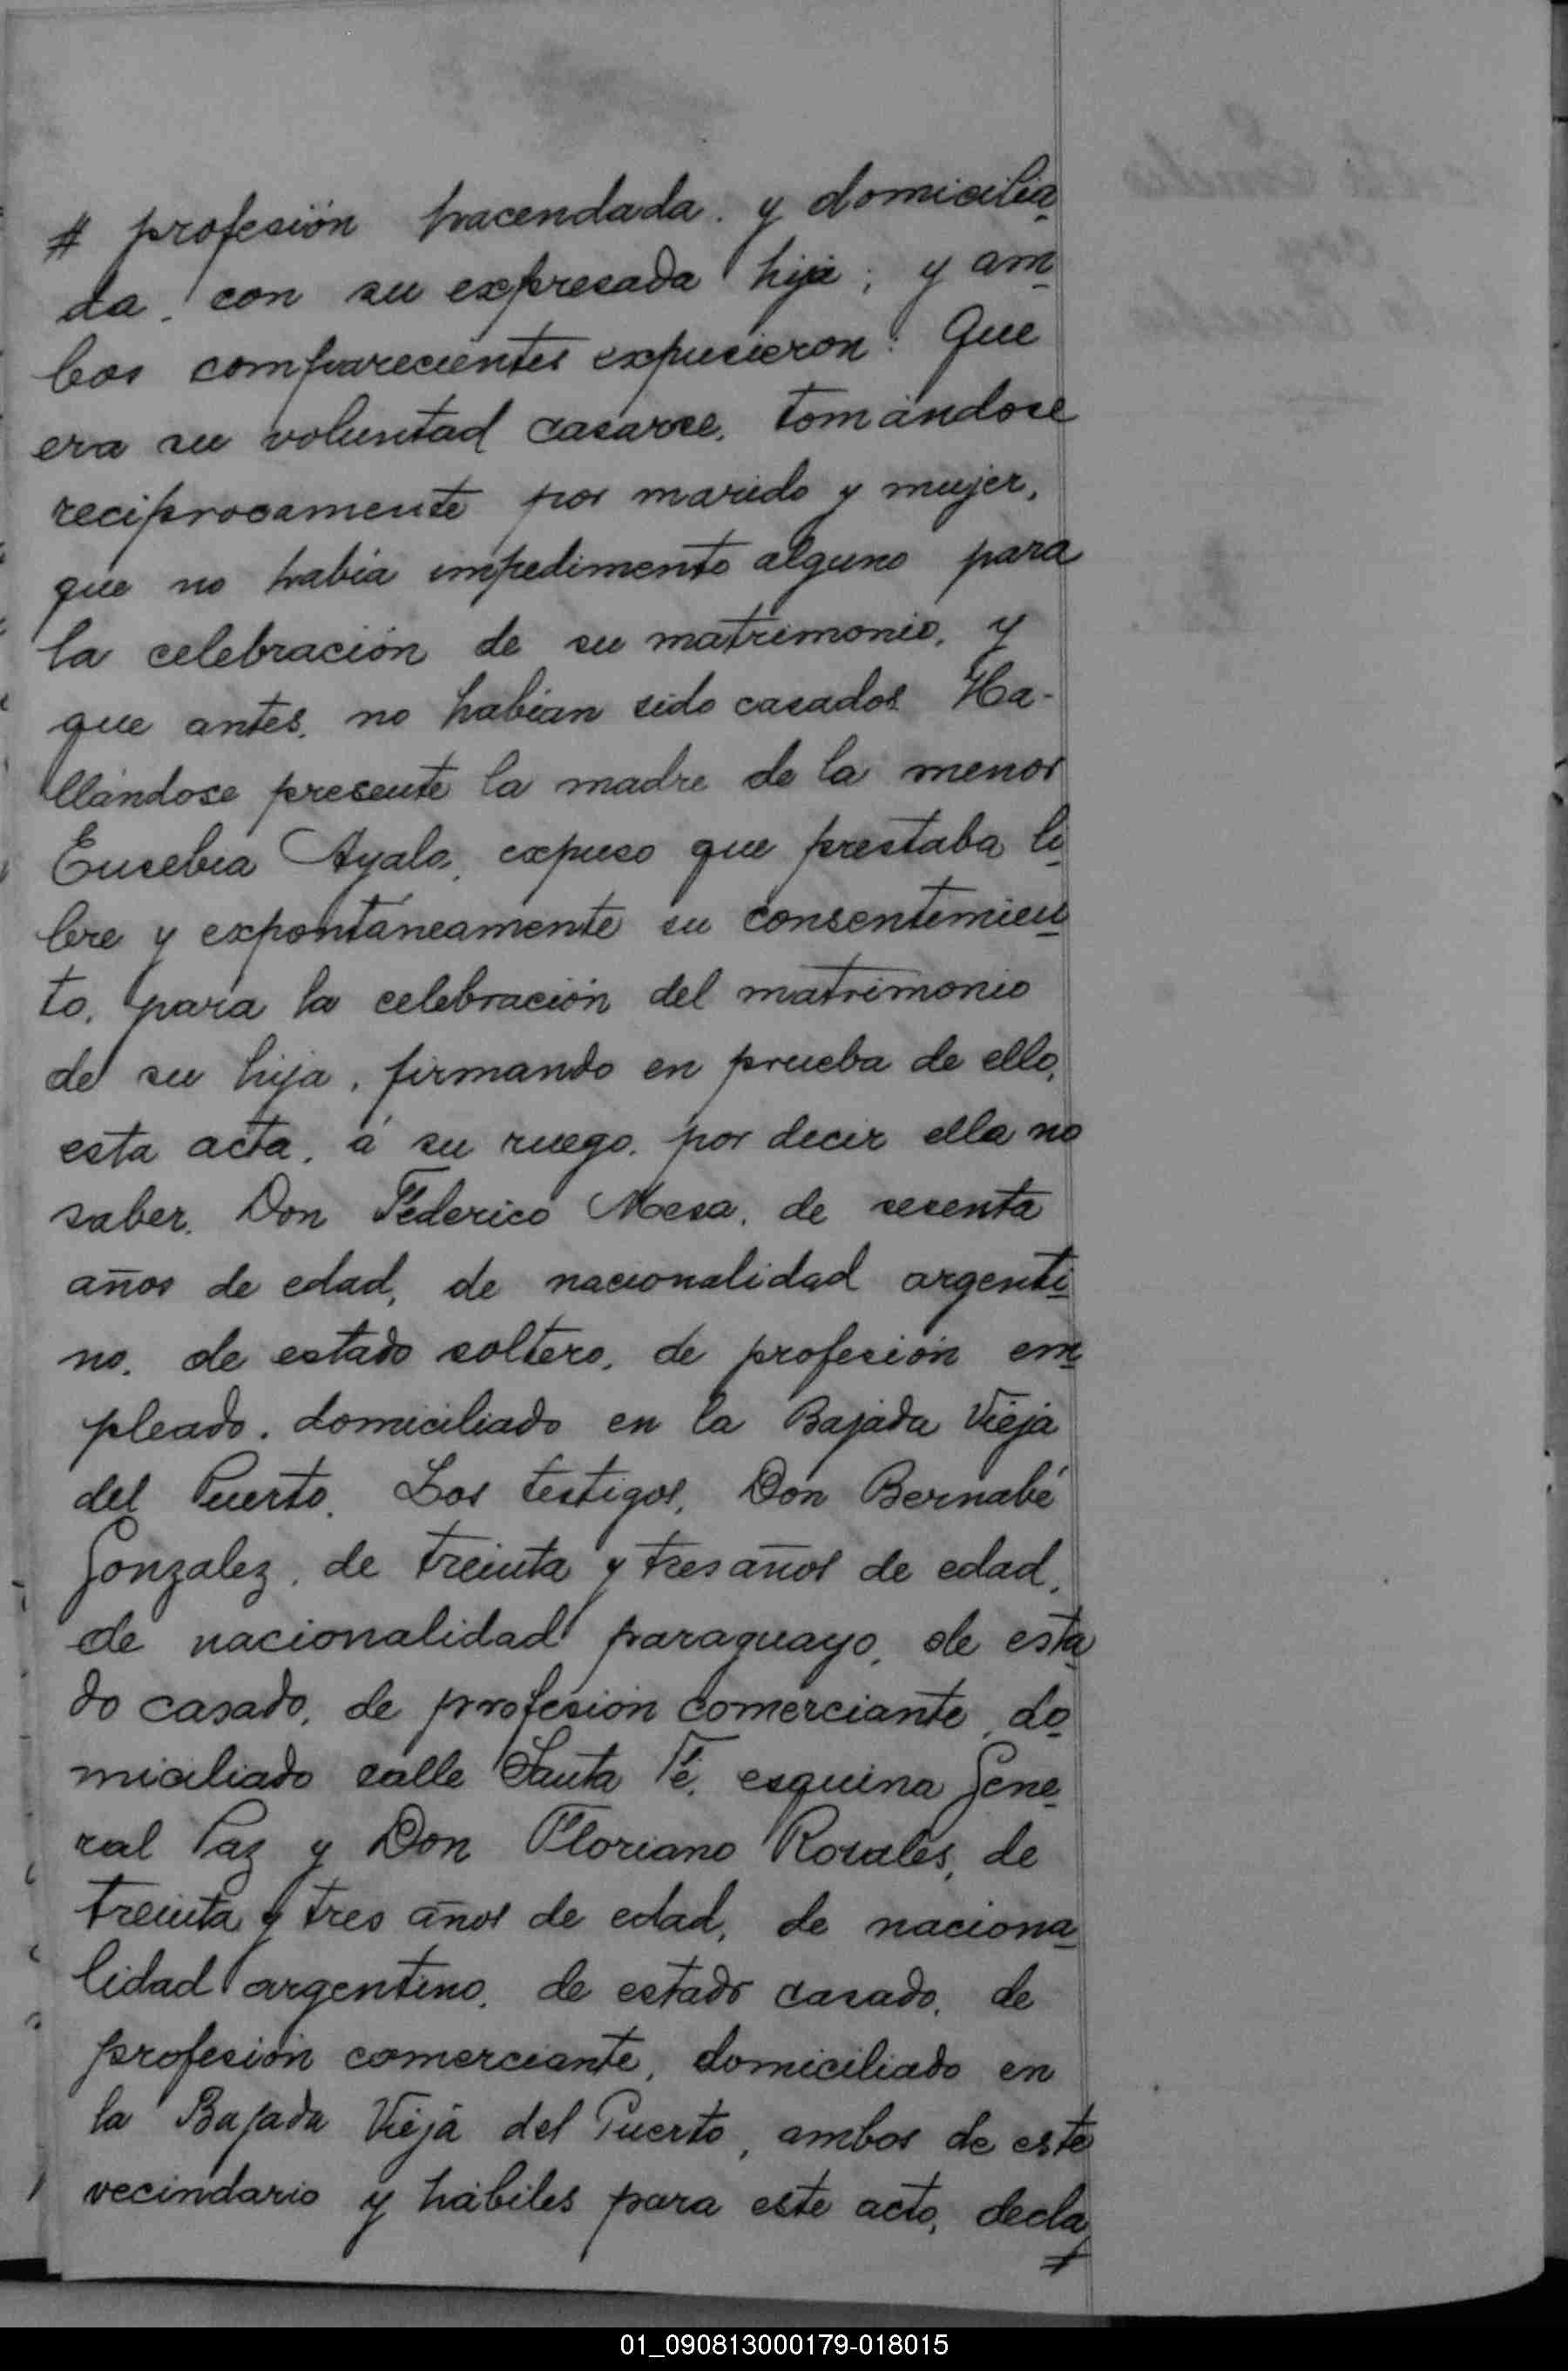 # profesión hacendada. y domicilia
da, con su expresada hija; y am
bos comparecientes expusieron: Que
era su voluntad casarse, tomándose
reciprocamente por marido y mujer,
que no había impedimento alguno para
la celebración de su matrimonio, y
que antes, no habían sido casados Ha-
llándose presente la madre de la menor
Eusebia Ayala, expuso que prestaba li
bre y expontáneamente su consentimien
to, para la celebración del matrimonio
de su hija, firmando en prueba de ello,
esta acta, á su ruego, por decir ella no
saber, Don Federico Mesa, de sesenta
años de edad, de nacionalidad argenti
no, de estado soltero, de profesión em
pleado, domiciliado en la Bajada Vieja
del Puerto. Los testigos, Don Bernabé
Gonzalez, de treinta y tres años de edad,
de nacionalidad paraguayo, de esta
do casado, de profesión comerciante, do
miciliado calle Santa Fé, esquina Gene
ral Paz y Don Floriano Rosales, de
treinta y tres años de edad, de naciona
lidad argentino, de estado casado, de
profesión comerciante, domiciliado en
la Bajada Vieja del Puerto, ambos de este
vecindario y hábiles para este acto, decla
#
01_090813000179-018015